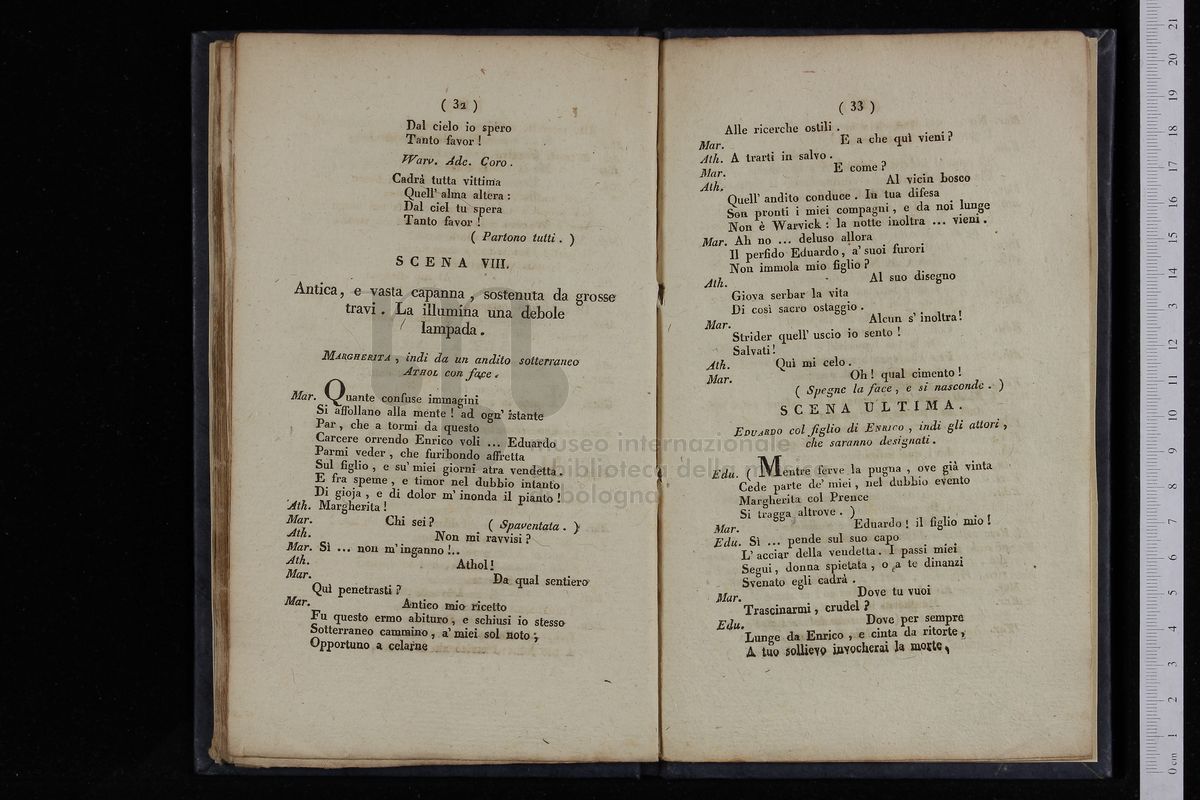 ( 32 )
Dal cielo io spero
Tanto favor !
Warv. Ade. Coro.
Cadrà tutta vittima
Quell' alma altera :
Dal ciel tu spera
Tanto favor !
( Partono tutti . )
SCENA VIII.
Antica, e vasta capanna , sostenuta da grosse
travi . La illumina una debole
lampada .
MARGHERITA , indi da un andito sotterraneo
ATHOL con face .
Mar. Quante confuse immagini
Si affollano alla mente ! ad ogn' istante
Par , che a tormi da questo
Carcere orrendo Enrico voli ... Eduardo
Parmi veder , che furibondo affretta
Sul figlio , e su' miei giorni atra vendetta .
E fra speme , e timor nel dubbio intanto
Di gioja , e di dolor m' inonda il pianto !
Ath. Margherita !
Mar. Chi sei ? ( Spaventata . )
Ath. Non mi ravvisi ?
Mar. Sì ... non m' inganno !..
Ath. Athol !
Mar. Da qual sentiero
Quì penetrasti ?
Mar. Antico mio ricetto
Fu questo ermo abituro , e schiusi io stesso
Sotterraneo cammino , a' miei sol noto ;
Opportuno a celarne
( 33 )
Alle ricerche ostili .
Mar. E a che quì vieni ?
Ath. A trarti in salvo .
Mar. E come ?
Ath. Al vicin bosco
Quell' andito conduce . In tua difesa
Son pronti i miei compagni , e da noi lunge
Non è Warvick : la notte inoltra ... vieni .
Mar. Ah no ... deluso allora
Il perfido Eduardo , a' suoi furori
Non immola mio figlio ?
Ath. Al suo disegno
Giova serbar la vita
Di così sacro ostaggio .
Mar. Alcun s' inoltra !
Strider quell' uscio io sento !
Salvati !
Ath. Quì mi celo .
Mar. Oh ! qual cimento !
( Spegne la face , e si nasconde . )
SCENA ULTIMA.
EDUARDO col figlio di ENRICO , indi gli attori ,
che saranno designati .
Edu. ( Mentre ferve la pugna , ove già vinta
Cede parte de' miei , nel dubbio evento
Margherita col Prence
Si tragga altrove . )
Mar. Eduardo ! il figlio mio !
Edu. Sì ... pende sul suo capo
L' acciar della vendetta . I passi miei
Segui , donna spietata , o a te dinanzi
Svenato egli cadrà .
Mar. Dove tu vuoi
Trascinarmi , crudel ?
Edu. Dove per sempre
Lunge da Enrico , e cinta da ritorte ,
A tuo sollievo invocherai la morte ,
museo internazionale
biblioteca della musica
bologna
0 cm 1 2 3 4 5 6 7 8 9 10 11 12 13 14 15 16 17 18 19 20 21